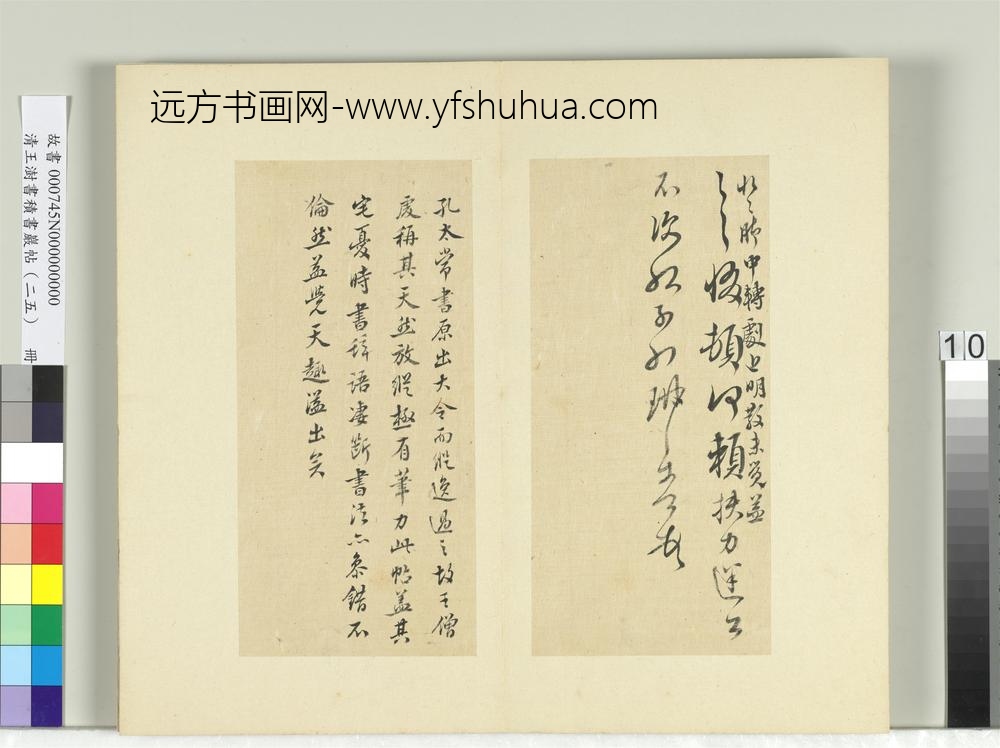 远方书画网-www.yfshuhua.com
故書 000745N000000000
清王澍書積書巖帖(二五) 冊
10
轉劇上明散未覺益
惙頓何賴扶力遲公
不次孤子孔琳之
孔太常書原出大令而縱逸過之故王僧
虔稱其天然放縱極有筆力此帖蓋其
宅憂時書辭語凄斷書法亦參錯不
倫然益覺天趣溢出矣